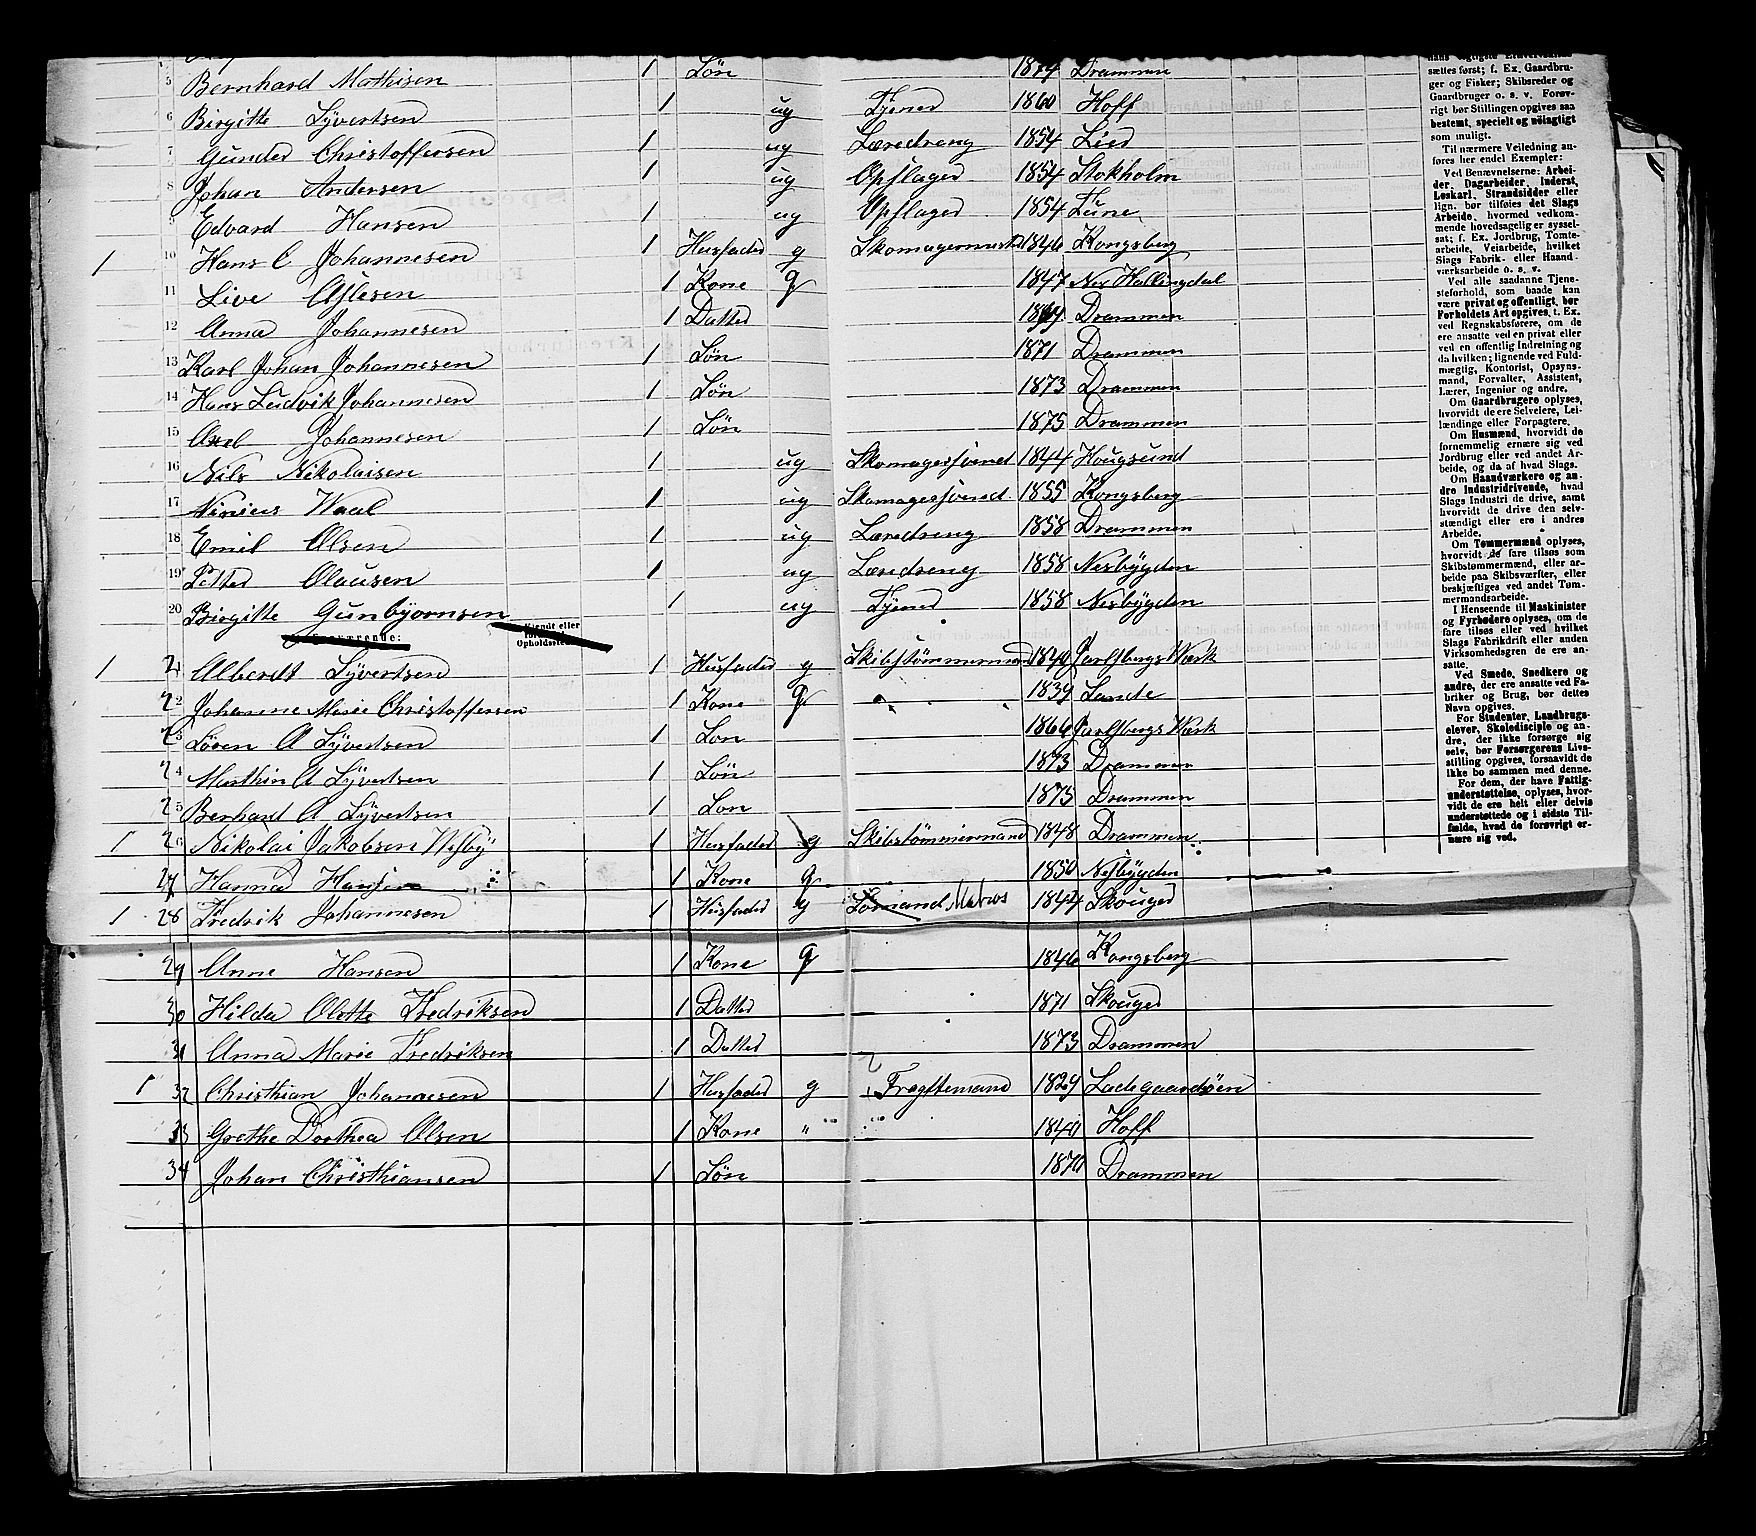 5 Bernhard Mathisen 1 Søn 1874 Drammen
6 Birgitte Syvertsen 1 ug Tjener 1860 Hoff
7 Gunder Christoffersen 1 ug Læredreng 1854 Lier
8 Johan Andersen 1 ug Opflager 1854 Stokholm
9 Edvard Hansen 1 ug Opflager 1854
1 10 Hans C Johannesen 1 Husfader g Skomagermester 1846 Kongsberg
11 Live Aslesen 1 Kone g 1847 Nes Hallingdal
12 Anna Johannesen 1 Datter 1869 Drammen
13 Karl Johan Johannesen 1 Søn 1871 Drammen
14 Hans Ludvik Johannesen 1 Søn 1873 Drammen
15 Axel Johannesen 1 Søn 1875 Drammen
16 Nils Nikolaisen 1 ug Skomagersvend 1844 Hougsund
17 Waal 1 ug Skomagersvend 1855 Kongsberg
18 Emil Olsen 1 ug Læredreng 1858 Drammen
19 Petter Olausen 1 ug Læredreng 1858 Nesbygden
20 Birgitte Gunbjørnsen 1 ug Tjener 1858 Nesbygden
1 21 Alberdt Syvertsen 1 Husfader g Skibstømmermand 1840 Jarlsbergs Værk
22 Johanne Marie Christoffersen 1 Kone g 1839 Sande
23 Søren A Syvertsen 1 Søn 1866 Jarlsbergs Værk
24 Marthin A Syvertsen 1 Søn 1873 Drammen
25 Berhard A Syvertsen 1 Søn 1875 Drammen
1 26 Nikolai Jakobsen Wesby 1 Husfader g Skibstømmermand 1848 Drammen
27 Hanna Hansen 1 Kone g 1850 Nesbygden
1 28 Fredrik Johannesen 1 Husfader g Sømand Matros 1844 Skouger
29 Anne Hansen 1 Kone g 1846 Kongsberg
30 Hilda Olette Fredriksen 1 Datter 1871 Skouger
31 Anna Marie Fredriksen 1 Datter 1873 Drammen
1 32 Christhian Johannesen 1 Husfader g Fragtemand 1829 Ladegaardsøen
33 Grethe Dorthea Olsen 1 Kone " 1840 Hoff
34 Johan Christhiansen 1 Søn 1870 Drammen
sættes først; f. Ex. Gaardbru-
ger og Fisker; Skibsreder og
Gaardbruger o. s. v. Forøv-
rigt bør Stillingen opgives saa
bestemt, specielt og nøiagtigt
som muligt.
Til nærmere Veiledning an-
føres her endel Exempler:
Ved Benævnelserne: Arbei-
der, Dagarbeider, Inderst,
Løskarl, Strandsidder eller
lign. bør tilføies det Slags
Arbeide, hvormed vedkom-
mende hovedsagelig er syssel-
sat; f. Ex. Jordbrug, Tomte-
arbeide, Veiarbeide, hvilket
Slags Fabrik- eller Haand-
værksarbeide o. s. v.
Ved alle saadanne Tjene-
steforhold, som baade kan
være privat og offentligt, bør
Forholdets Art opgives, t. Ex.
ved Regnskabsførere, om de
ere ansatte ved en privat eller
ved en offentlig Indretning og
da hvilken; lignende ved Fuld-
mægtig, Kontorist, Opsyns-
mand, Forvalter, Assistent,
Lærer, Ingeniør og andre.
Om Gaardbrugere oplyses,
hvorvidt de ere Selveiere, Lei-
lændinge eller Forpagtere.
Om Husmænd, hvorvidt de
fornemmelig ernære sig ved
Jordbrug eller ved andet Ar-
beide, og da af hvad Slags.
Om Haandværkere og an-
dre Industridrivende, hvad
Slags Industri de drive, samt
hvorvidt de drive den selv-
stændigt eller ere i andres
Arbeide.
Om Tømmermænd oplyses,
hvorvidt de fare tilsøs som
Skibstømmermænd, eller ar-
beide paa Skibsværfter, eller
beskjæftiges ved andet Tøm-
mermandsarbeide.
I Henseende til Maskinister
og Fyrbødere oplyses, om de
fare tilsøs eller ved hvilket
Slags Fabrikdrift eller anden
Virksomhedsgren de ere an-
satte.
Ved Smede, Snedkere og
andre, der ere ansatte ved Fa-
briker og Brug, bør dettes
Navn opgives.
For Studenter, Landbrugs-
elever, Skoledisciple og an-
dre, der ikke forsørge sig
selv, bør Forsørgerens Livs-
stilling opgives, forsaavidt de
ikke bo sammen med denne.
For dem, der have Fattig-
understøttelse, oplyses, hvor-
vidt de ere helt eller delvis
understøttede og i sidste Til-
fælde, hvad de forøvrigt er-
nære sig ved.